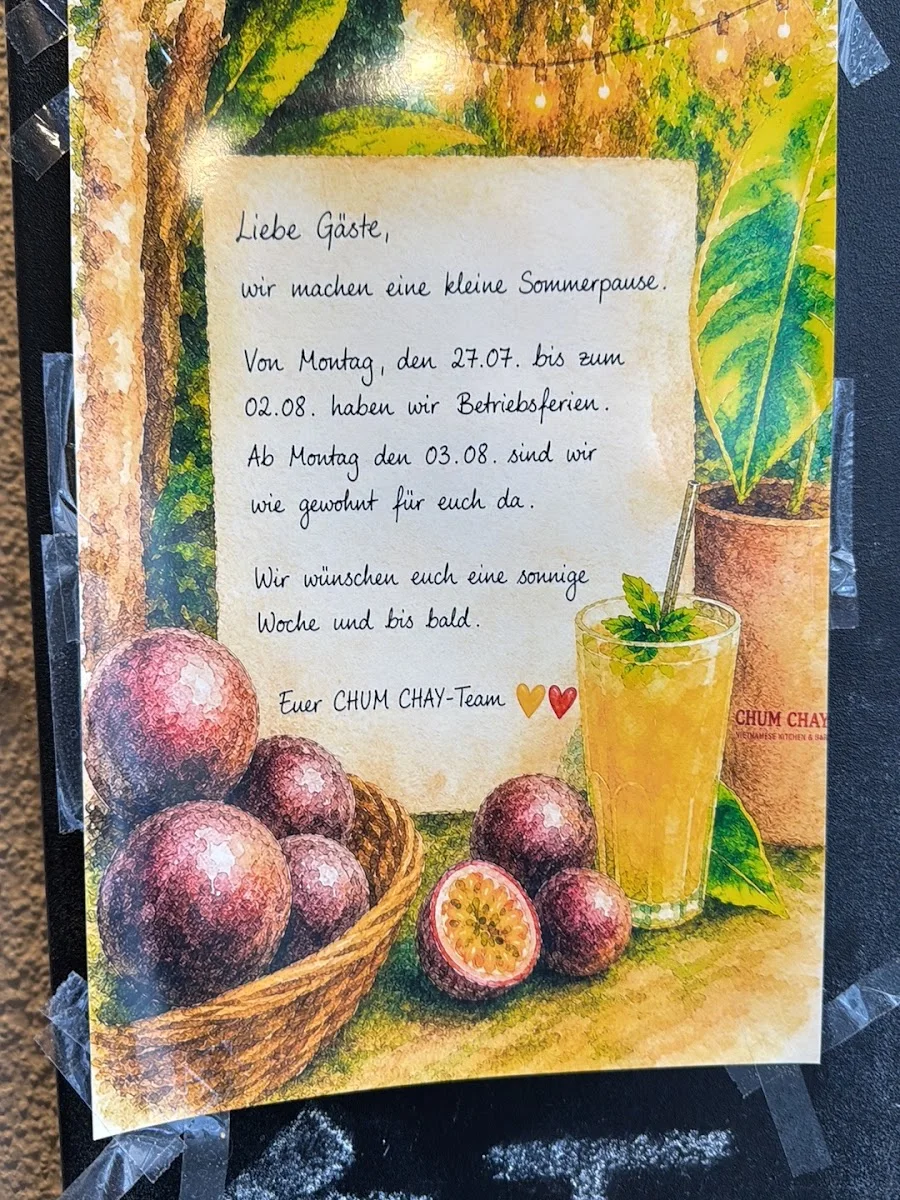 Liebe Gäste,
wir machen eine kleine Sommerpause.
Von Montag, den 27.07. bis zum
02.08. haben wir Betriebsferien.
Ab Montag den 03.08. sind wir
wie gewohnt für euch da.
Wir wünschen euch eine sonnige
Woche und bis bald.
Euer CHUM CHAY-Team 💛❤️
CHUM CHAY
VIETNAMESE KITCHEN & BAR